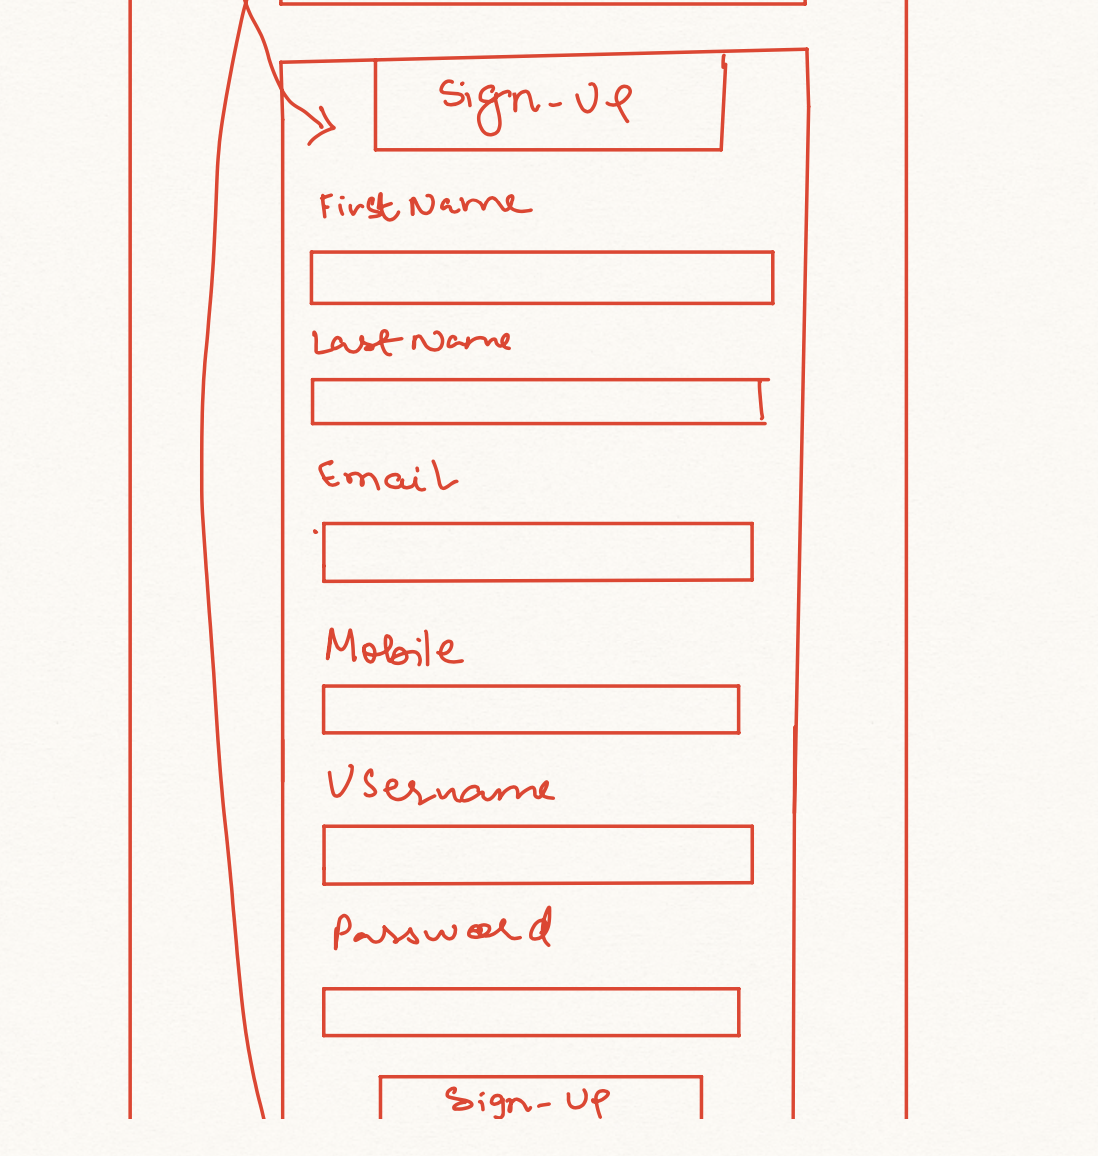 Sign-UP
First Name
Last Name
Email
Mobile
Username
Password
Sign-UP